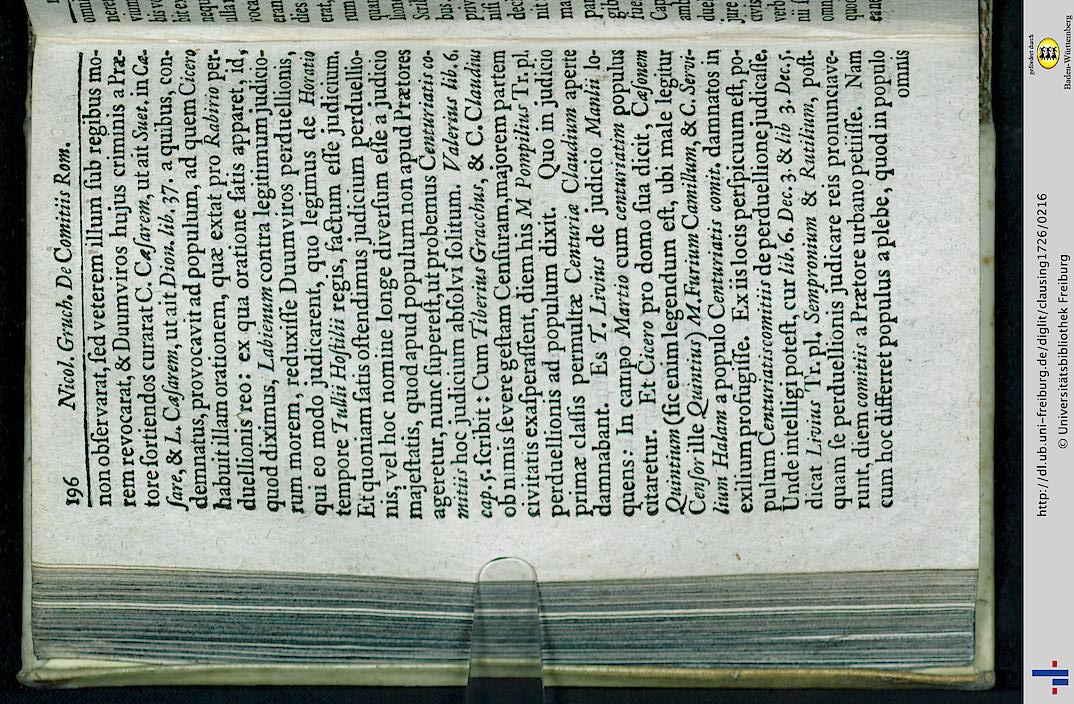 196 Nicol. Gruch. De Comitiis Rom.
non obſervarat, ſed veterem illum ſub regibus mo-
rem revocarat, & Duumviros hujus criminis a Præ-
tore ſortiendos curarat C. Cæſarem, ut ait Suet. in Cæ-
ſare, & L. Cæſarem, ut ait Dion. lib. 37. a quibus, con-
demnatus, provocavit ad populum, ad quem Cicero
habuit illam orationem, quæ extat pro Rabirio per-
duellionis reo: ex qua oratione ſatis apparet, id,
quod diximus, Labienum contra legitimum judicio-
rum morem, reduxiſſe Duumviros perduellionis,
qui eo modo judicarent, quo legimus de Horatio
tempore Tullii Hoſtilii regis, factum eſſe judicium,
Et quoniam ſatis oſtendimus judicium perduellio-
nis, vel hoc nomine longe diverſum eſſe a judicio
majeſtatis, quod apud populum non apud Prætores
ageretur, nunc ſupereſt, ut probemus Centuriatis co-
mitiis hoc judicium abſolvi ſolitum. Valerius lib. 6.
cap. 5. ſcribit: Cum Tiberius Gracchus, & C. Claudius
ob nimis ſevere geſtam Cenſuram, majorem partem
civitatis exaſperaſſent, diem his M Pompilius Tr. pl.
perduellionis ad populum dixit. Quo in judicio
primæ claſſis permultæ Centuriæ Claudium aperte
damnabant. Es T. Livius de judicio Manlii lo-
quens: In campo Martio cum centuriatim populus
citaretur. Et Cicero pro domo ſua dicit, Cæſonem
Quintium (ſic enim legendum eſt, ubi male legitur
Cenſor ille Quantius) M. Furium Camillum, & C. Servi-
lium Halam a populo Centuriatis comit. damnatos in
exilium profugiſſe. Ex iis locis perſpicuum eſt, po-
pulum Centuriatis comitiis de perduellione judicaſſe.
Unde intelligi poteſt, cur lib. 6. Dec. 3. & lib 3. Dec. 5.
dicat Livius Tr. pl. Sempronium & Rutilium, poſt-
quam ſe perduellionis judicare reis pronunciave-
runt, diem comitiis a Prætore urbano petiiſſe. Nam
cum hoc differret populus a plebe, quod in populo
omnis
gefördert durch
Baden-Württemberg
http://dl.ub.uni-freiburg.de/diglit/clausing1726/0216
© Universitätsbibliothek Freiburg